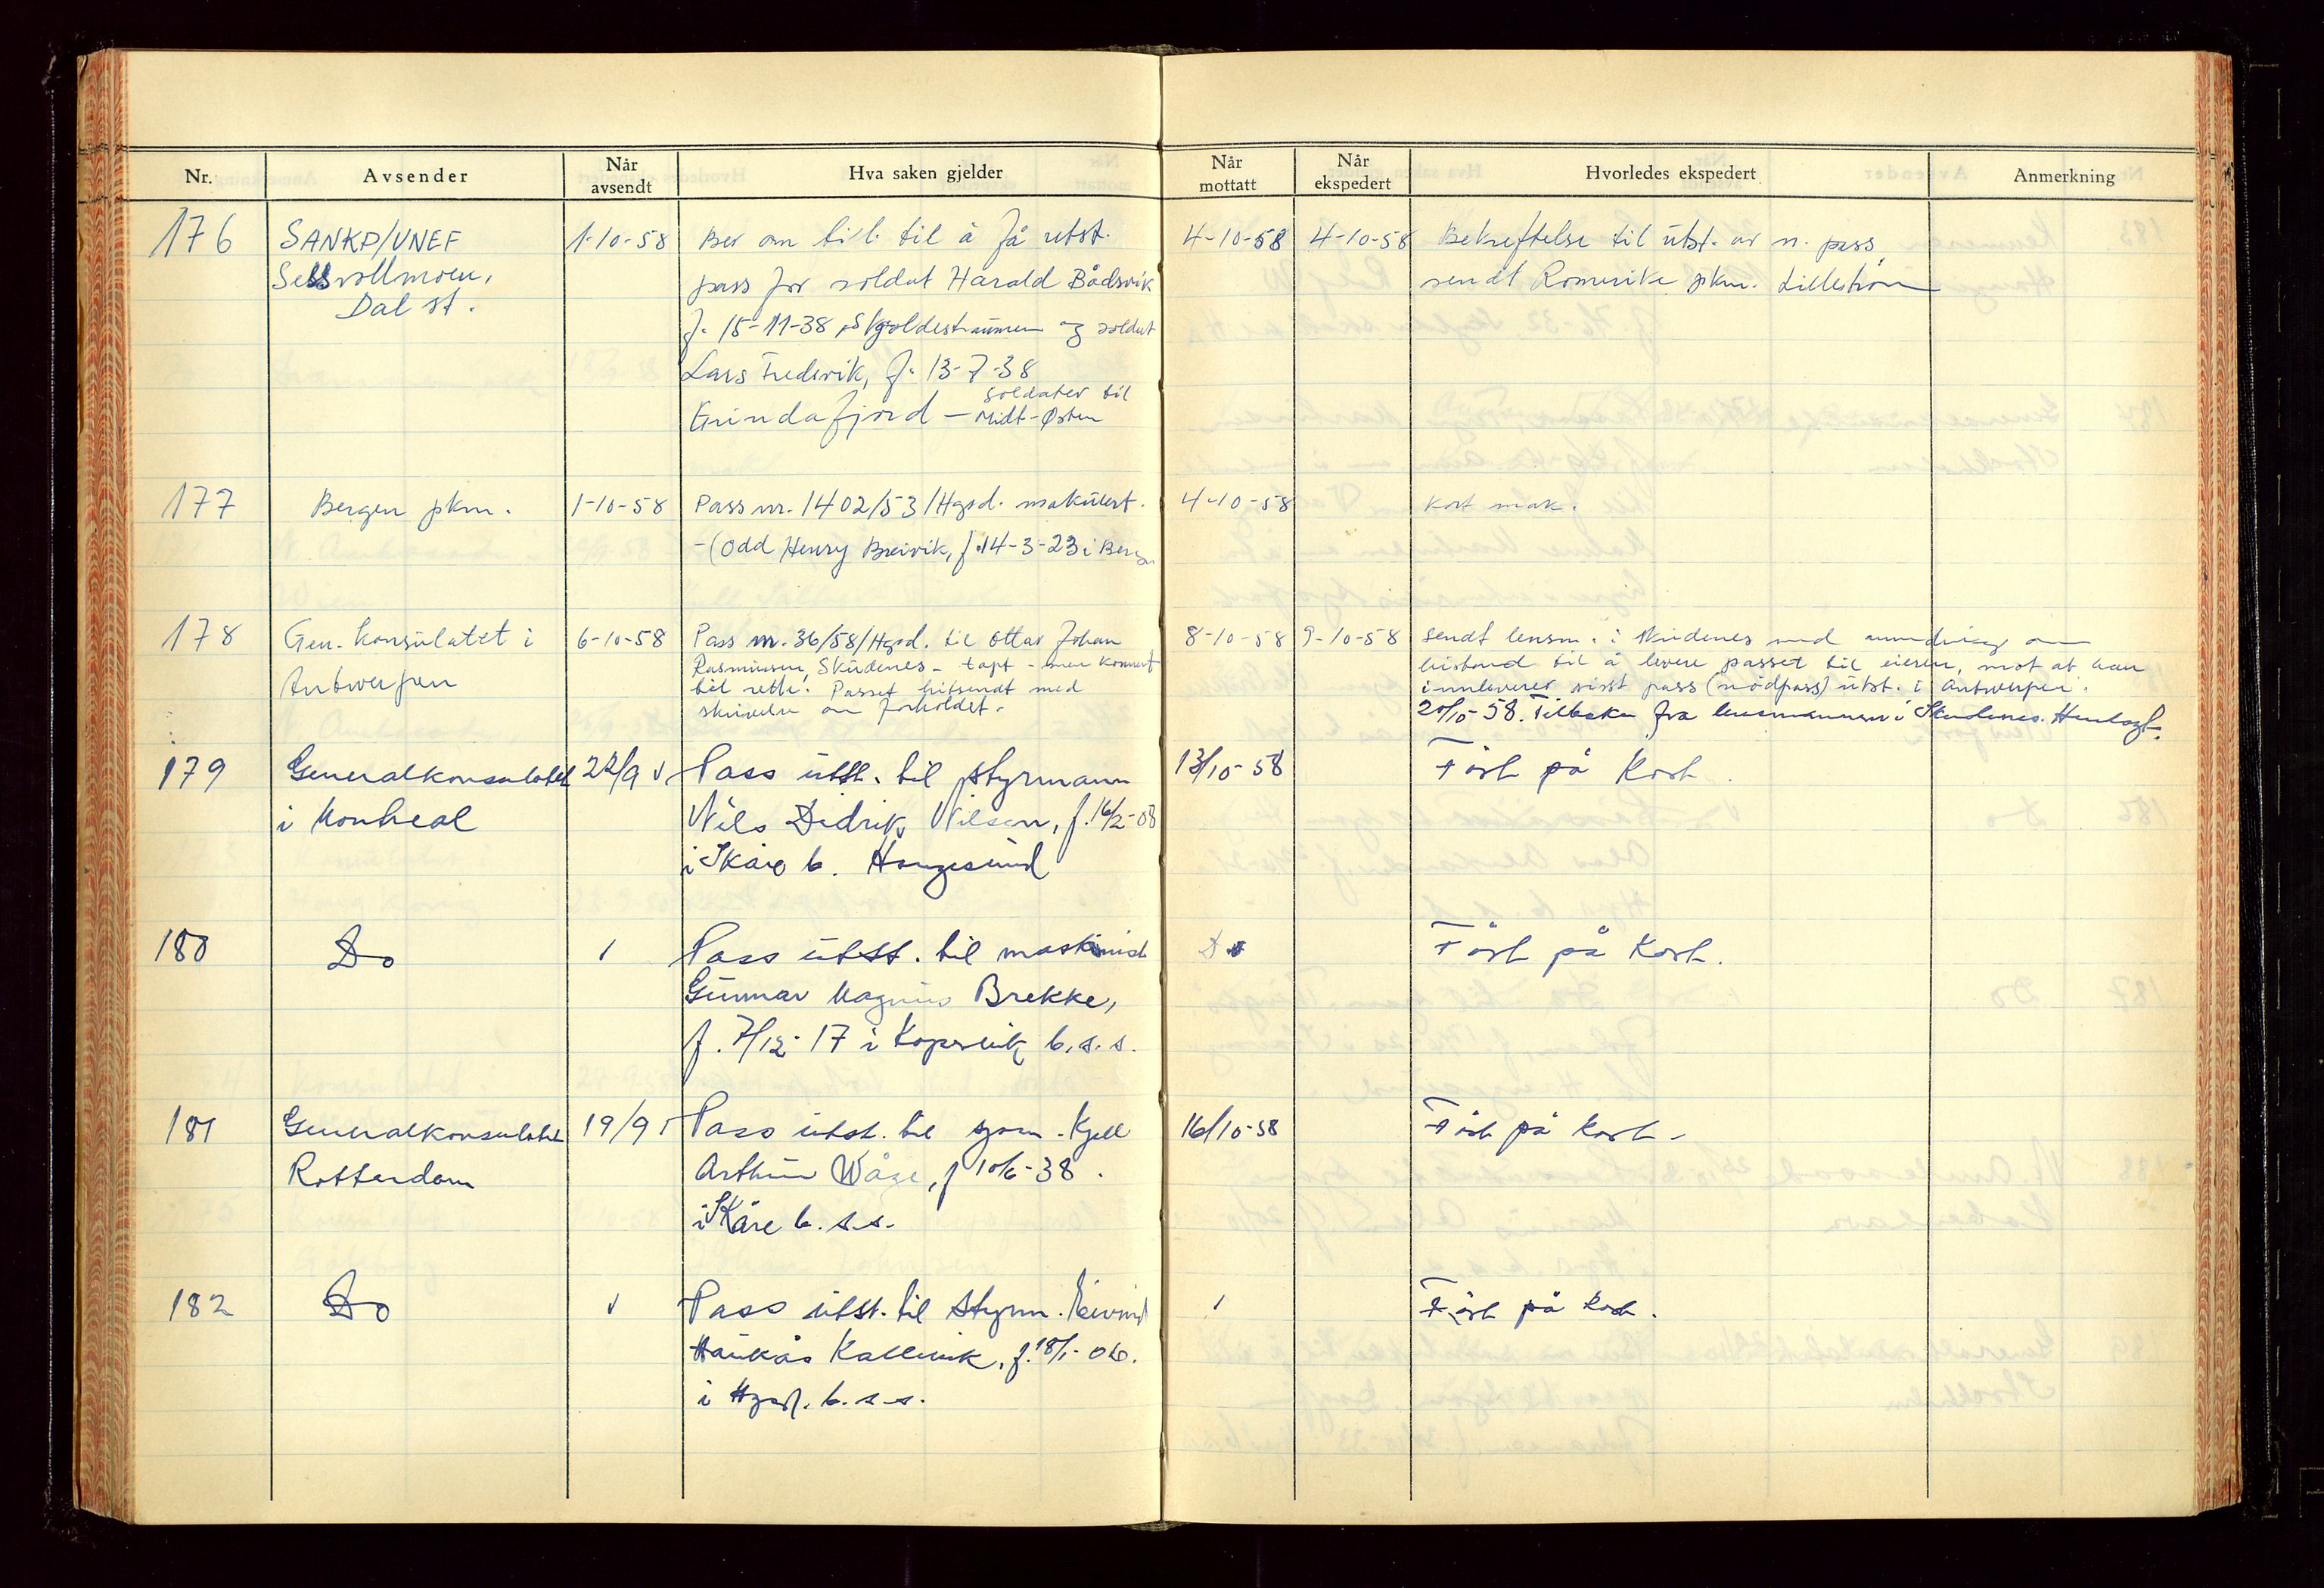 Nr. Avsender Når avsendt Hva saken gjelder Når mottatt Når ekspedert Hvorledes ekspedert Anmerkning
176 SANKP/UNEF 1-10-58 Ber om till. til å få utst. 4-10-58 4-10-58 Bekreftelse til utst. av n. pass
Sessvollmoen, pass for soldat Harald Bådsvik sendt Romerike pkm. Lillestrøm
Dal st. f. 15-11-38, Skjoldestraumen og soldat
Lars Fredsvik, f. 13-7-38
Grindafjord — soldater til
Midt-Østen
177 Bergen pkm. 1-10-58 Pass nr. 1402/53/Hgsd. makulert. 4-10-58 Kort mak.
-(Odd Henry Breivik, f. 14-3-23 i Bergen
178 Gen. konsulatet i 6-10-58 Pass nr. 36/58/Hgsd. til Ottar Johan 8-10-58 9-10-58 Sendt lensm. i Skudenes med anmodning om
Antwerpen Rasmussen, Skudenes - tapt - men kommet bistand til å levere passet til eieren, mot at han
til rette. Passet hitsendt med innleverer sisst pass (nødpass) utst. i Antwerpen.
skrivelse om forholdet. 20/10-58. Tilbake fra lensmannen i Skudenes. Henlagt.
179 Generalkonsulatet 22/9 Pass utst. til styrmann 13/10-58 Ført på kort.
i Montreal Nils Didrik Nilsen, f. 16/2-08
i Skåre b. Haugesund
180 Do Pass utst. til maskinist Do Ført på Kort.
Gunnar Magnus Brekke,
f. 7/12-17 i Kopervik b.s.s.
181 Generalkonsulatet 19/9 Pass utst. til sjøm. Kjell 16/10-58 Ført på kort.
Rotterdam Arthur Våge, f. 10/6-38.
i Skåre b.s.s.
182 Do Pass utst. til styrm. Eivind Ført på kort.
Haukås Kallevik, f. 18/1-06.
i Hgsd. b.s.s.